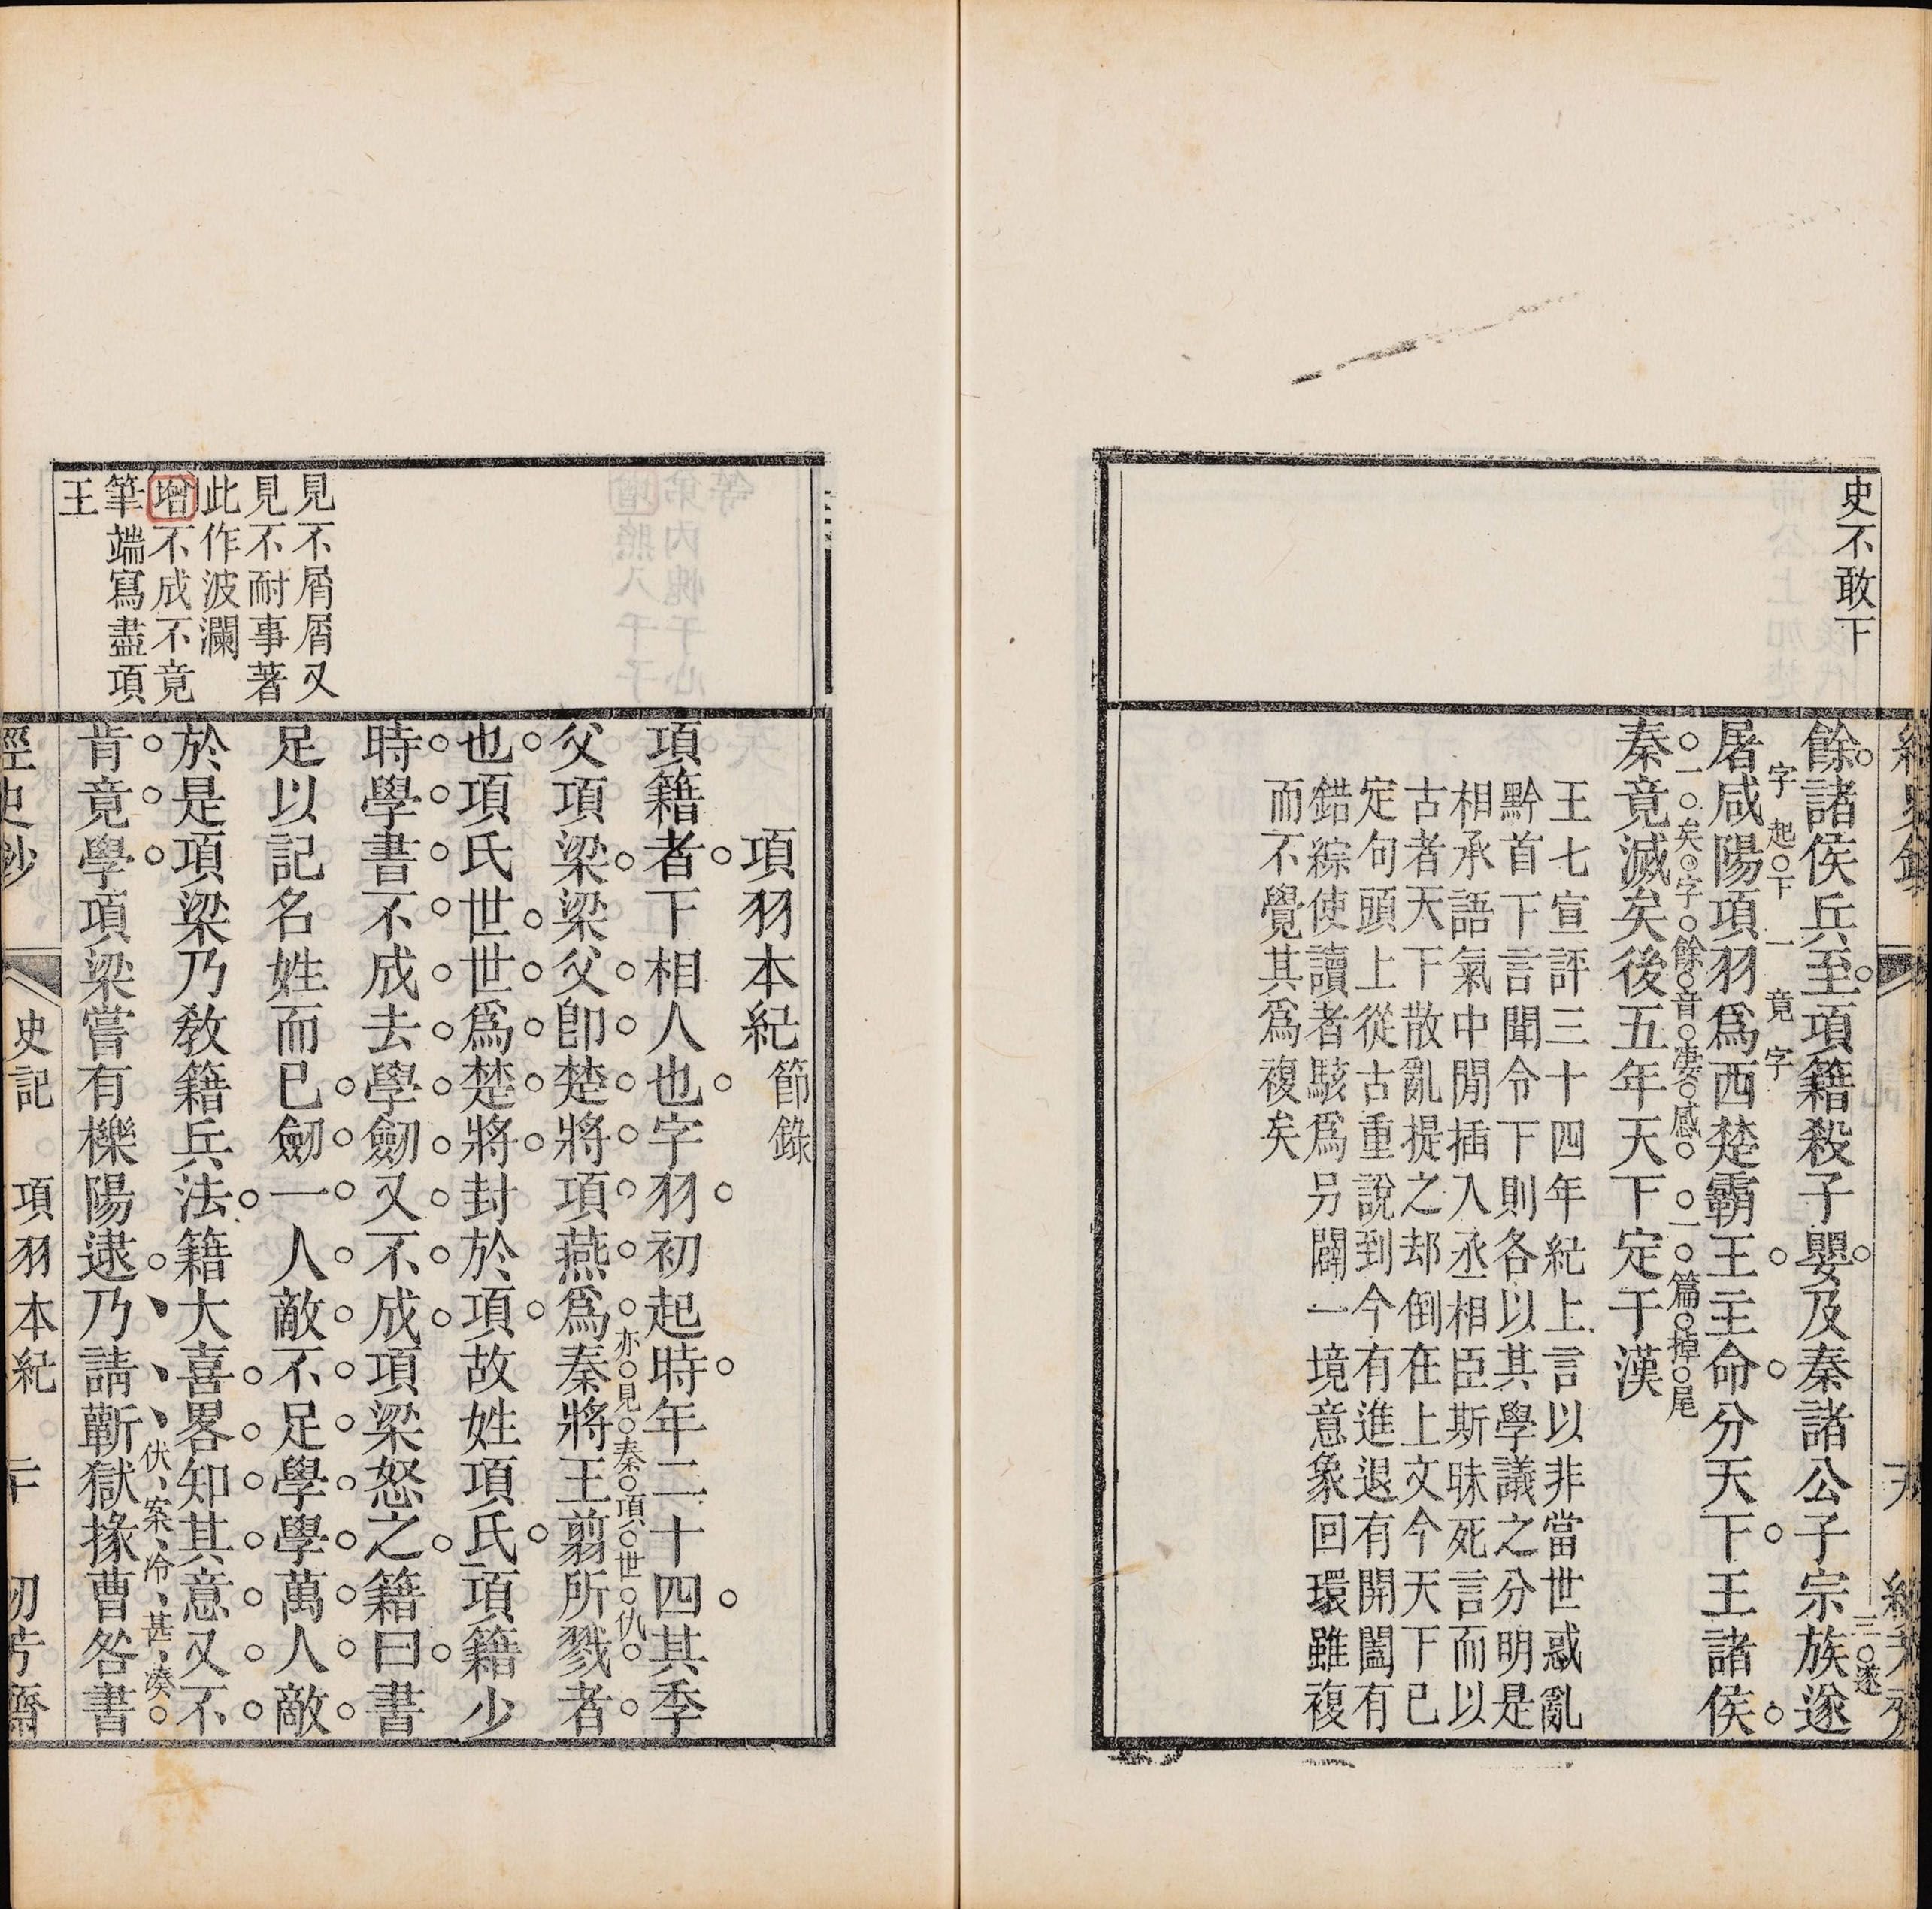 史不敢下
餘諸侯兵至項籍殺子嬰及秦諸公子宗族遂
三遂字起下一竟字
屠咸陽項羽爲西楚霸王主命分天下王諸侯
一矣字餘音淒感
一篇掉尾
秦竟滅矣後五年天下定于漢
王七宣評三十四年紀上言以非當世惑亂
黔首下言聞令下則各以其學議之分明是
相承語氣中閒插入丞相臣斯昧死言而以
古者天下散亂提之却倒在上文今天下已
定句頭上從古重說到今有進退有開闔有
錯綜使讀者駭爲另闢一境意象回環雖複
而不覺其爲複矣
見不屑屑又
見不耐事著
此作波瀾
增不成不竟
筆端寫盡項
王
項羽本紀節錄
項籍者下相人也字羽初起時年二十四其季
父項梁梁父卽楚將項燕爲秦將王翦所戮者
亦見秦項世仇
也項氏世世爲楚將封於項故姓項氏項籍少
時學書不成去學劒又不成項梁怒之籍曰書
足以記名姓而已劒一人敵不足學學萬人敵
於是項梁乃敎籍兵法籍大喜畧知其意又不
肯竟學項梁嘗有櫟陽逮乃請蘄獄掾曹咎書
伏案冷甚湊
經史鈔
史記 項羽本紀 二十 初芳齋